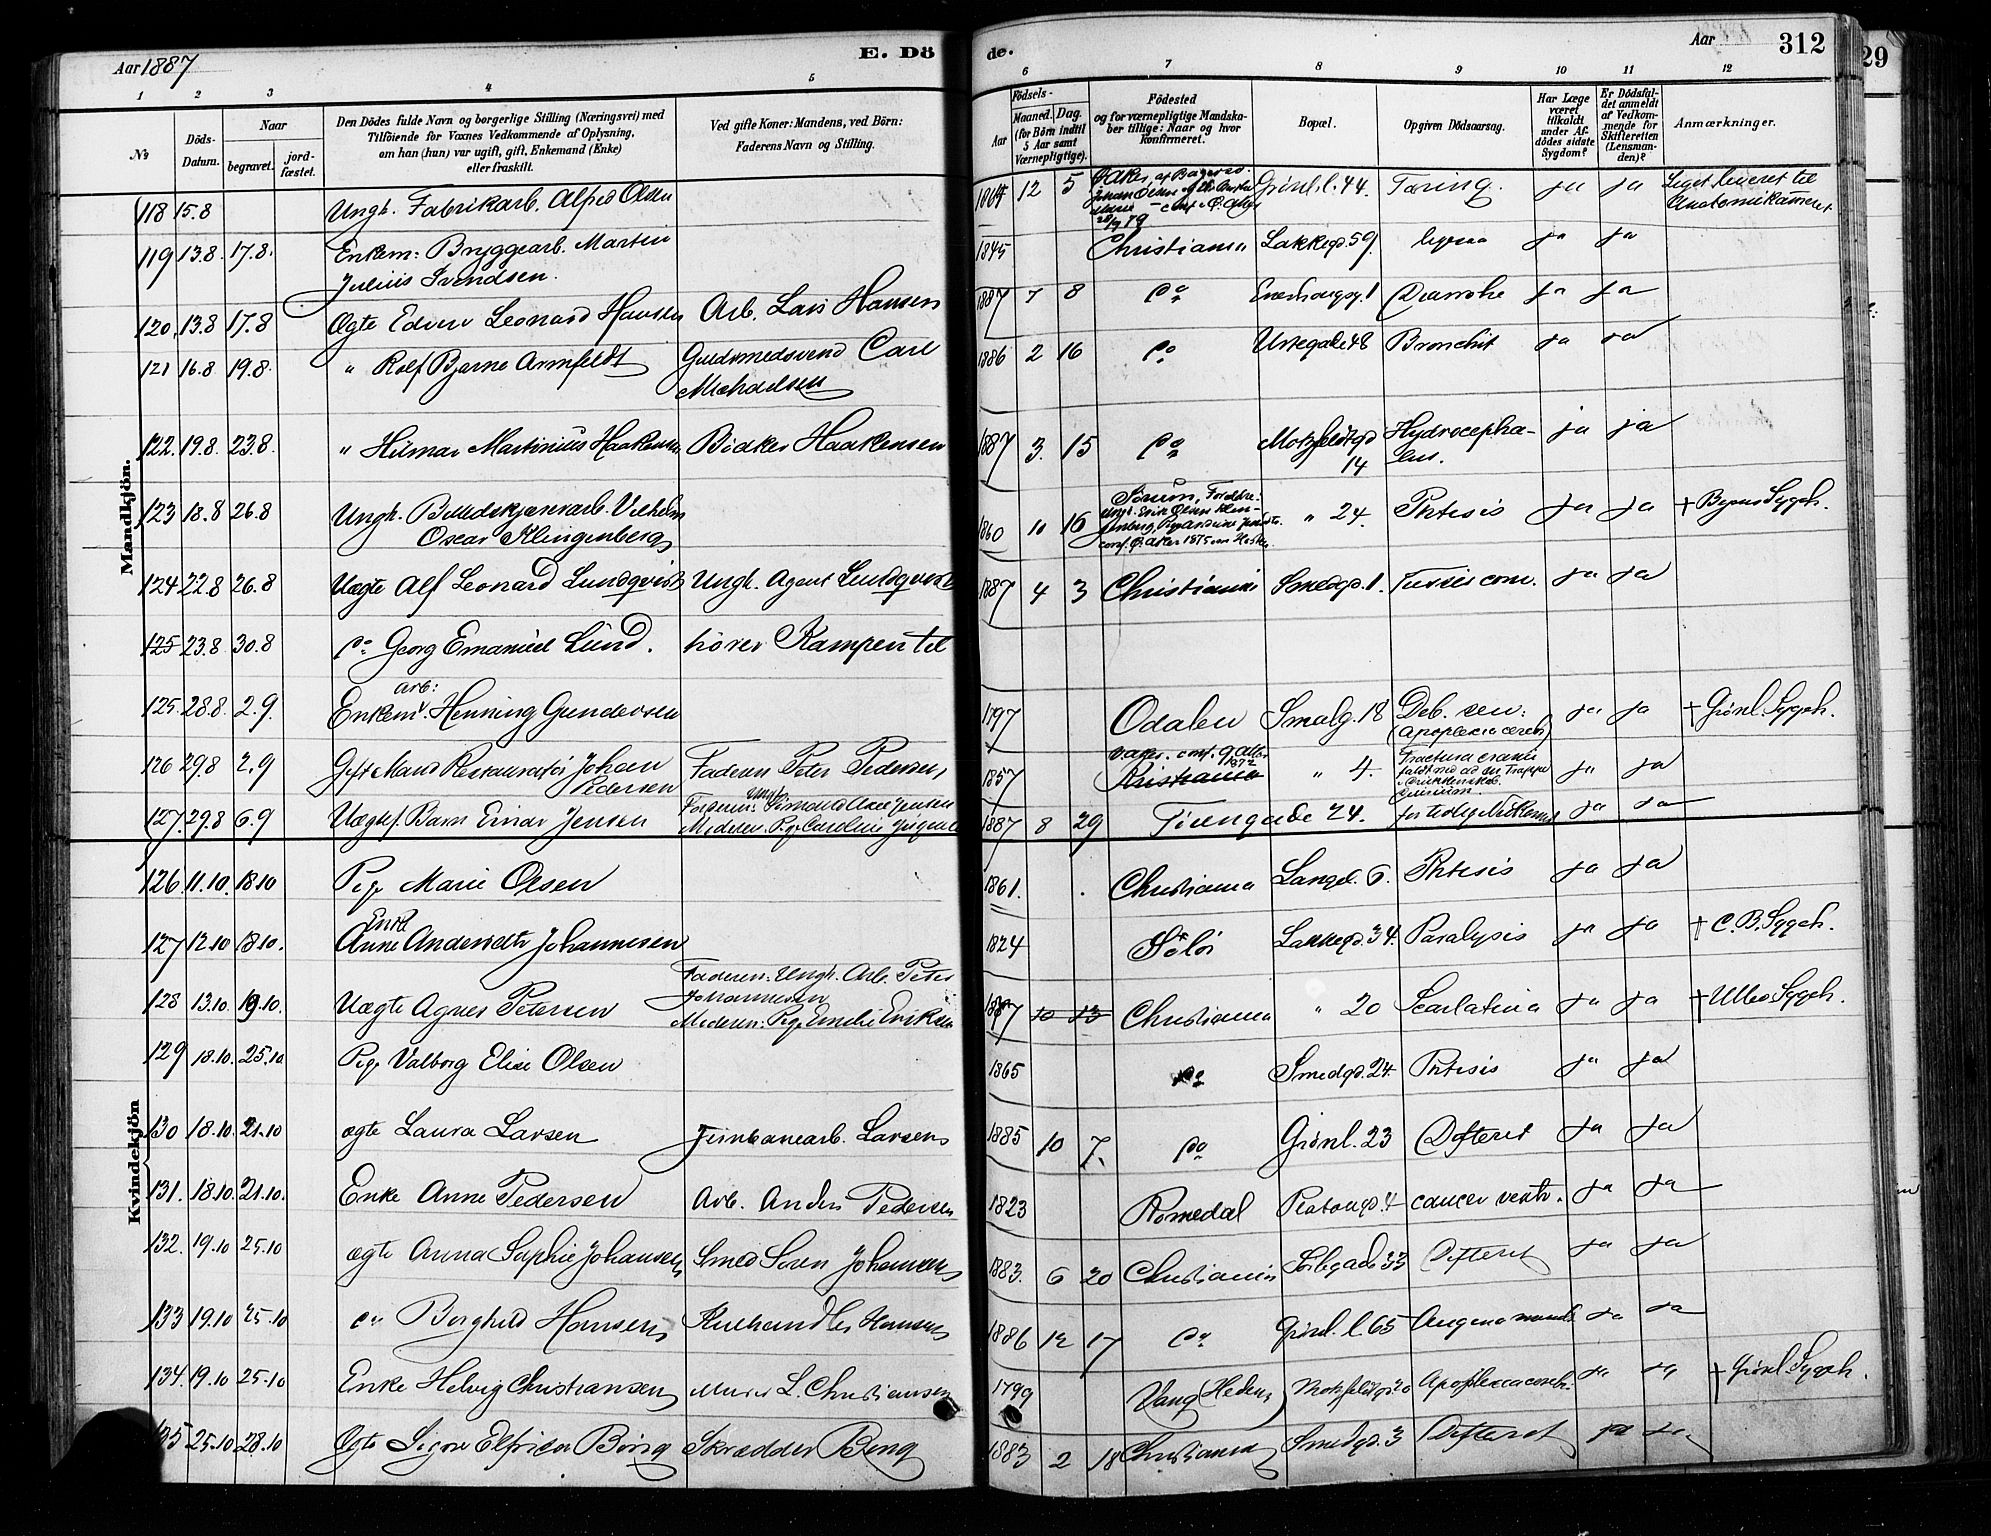 Aar 1887 E. Dö de. Aar 312
1 2 3 4 5 6 7 8 9 10 11 12
№ Döds-Datum. Naar begravet. jord-fæstet.
Den Dödes fulde Navn og borgerlige Stilling (Næringsvei) med
Tilföiende for Voxnes Vedkommende af Oplysning,
om han (hun) var ugift, gift, Enkemand (Enke)
eller fraskilt.
Ved gifte Koner: Mandens, ved Börn:
Faderens Navn og Stilling.
Födsels-
Aar Maaned. Dag.
(for Börn indtil
5 Aar samt
Værnepligtige).
Födested
og for værnepligtige Mandska-
ber tillige: Naar og hvor
konfirmeret.
Bopæl.
Opgiven Dödsaarsag.
Har Læge
været
tilkaldt
under Af-
dödes sidste
Sygdom?
Er Dödsfal-
det anmeldt
af Vedkom-
mende for
Skifteretten
(Lensman-
den)?
Anmærkninger.
Mandkjön.
118 15.8 Ungk. Fabrikarb. Alfred Olsen 1864 12 5 Grönl. l. 44. Tæring. ja ja Liget leveret til
Anatomikameret
119 13.8. 17.8. Enkem: Bryggearb. Marten 1845 Christiania Lakkegd. 59. ja ja
Julius Svendsen.
120. 13.8 17.8 Ægte Leonard Hansen Arb. Lars Hansen 1887 7 8 do 1 ja ja
121 16.8 19.8. " Rolf Bjarne Armfeldt Guldsmedsvend Carl 1886 2 16 do Urtegade 48 Bronchit ja ja
Michaelsen
122. 19.8. 23.8. " Hilmar Martinius Haakensen Bödker Haakensen 1887 3. 15 do Motzfeldtgd Hydrocepha- ja ja
14 lus.
123 18.8 26.8 Ungk. Vilhelm 1860 11 16 Sörum, " 24. Phtisis ja ja + Byens Sygeh.
Oscar Klingenberg conf. Ö. Aker 1875
124 22.8 26.8 Uægte Alf Leonard Lundqvist Ungk. Agent Lundqvist 1887 4 3 Christiania Smedgd. 1. Tussis conv. ja ja
125 23.8 30.8 do Georg Emanuel Lund. hörer Kampen til
arb:
125. 28.8. 2.9. Enkem. Henning Gundersen 1797 Odalen Smalg. 18 Deb. sen: ja ja + Grönl. Sygeh.
(Apoplexia cereb)
126 29.8 2.9 Gift Mand Restauratör Johan Faderen Peter Pedersen, 1857 Kristiania " 4. Fractura cranii ja ja
Pedersen
127. 29.8 6.9 Uægtef. Barn Einar Jensen 1887 8 29 Tirengade 24. for tidlig ja ja
Kvindekjön
126. 11.10. 18.10 Pige Marie Olsen 1861. Christiania Langl. 6. Phtisis ja ja
Enke
127 12.10 18.10. Anne Andersdtr Johannesen 1824 Solör Lakkegd. 34. Paralysis ja ja + C. B. Sygeh.
Faderen: Ungk. Arb. Peter
128 13.10 19.10. Uægte Agnes Petersen Johannesen 1887 10 13 Christiania " 20 Scarlatina ja ja + Ullev. Sygeh.
Moderen: Pige Emelie Eriksen
129 18.10. 25.10 Pige Valborg Elise Olsen 1865 do Smedgd. 24. Phtisis ja ja
130 18.10. 21.10 ægte Laura Larsen Jernbanearb. Larsen 1885 10 7. do Grönl. 23 Difterit ja ja
131. 18.10. 21.10. Enke Anne Pedersen Arb. Anders Pedersen 1823 Romedal Platougd. 4 cancer ventr. ja ja
132. 19.10 25.10 ægte Anna Sophie Johansen Smed Soren Johansen 1883. 6 20 Christiania 33 Difterit ja ja
133 19.10 25.10 do Borghild Hansen Kulhandler Hansen 1886 12 17 do Grönl. l. 65 Angina ja ja
134. 19.10 25.10 Enke Helvig Christiansen L. Christiansen 1799 Vang Hedem. Motzfeldtgd. 20 Apoplexia cerebr. ja ja + Grönl. Sygeh.
135 25.10 28.10 Ægte Signe Elfrida Börig Skrædder 1883 2 18 Christiania Smedgd. 3 Difteret ja ja
29